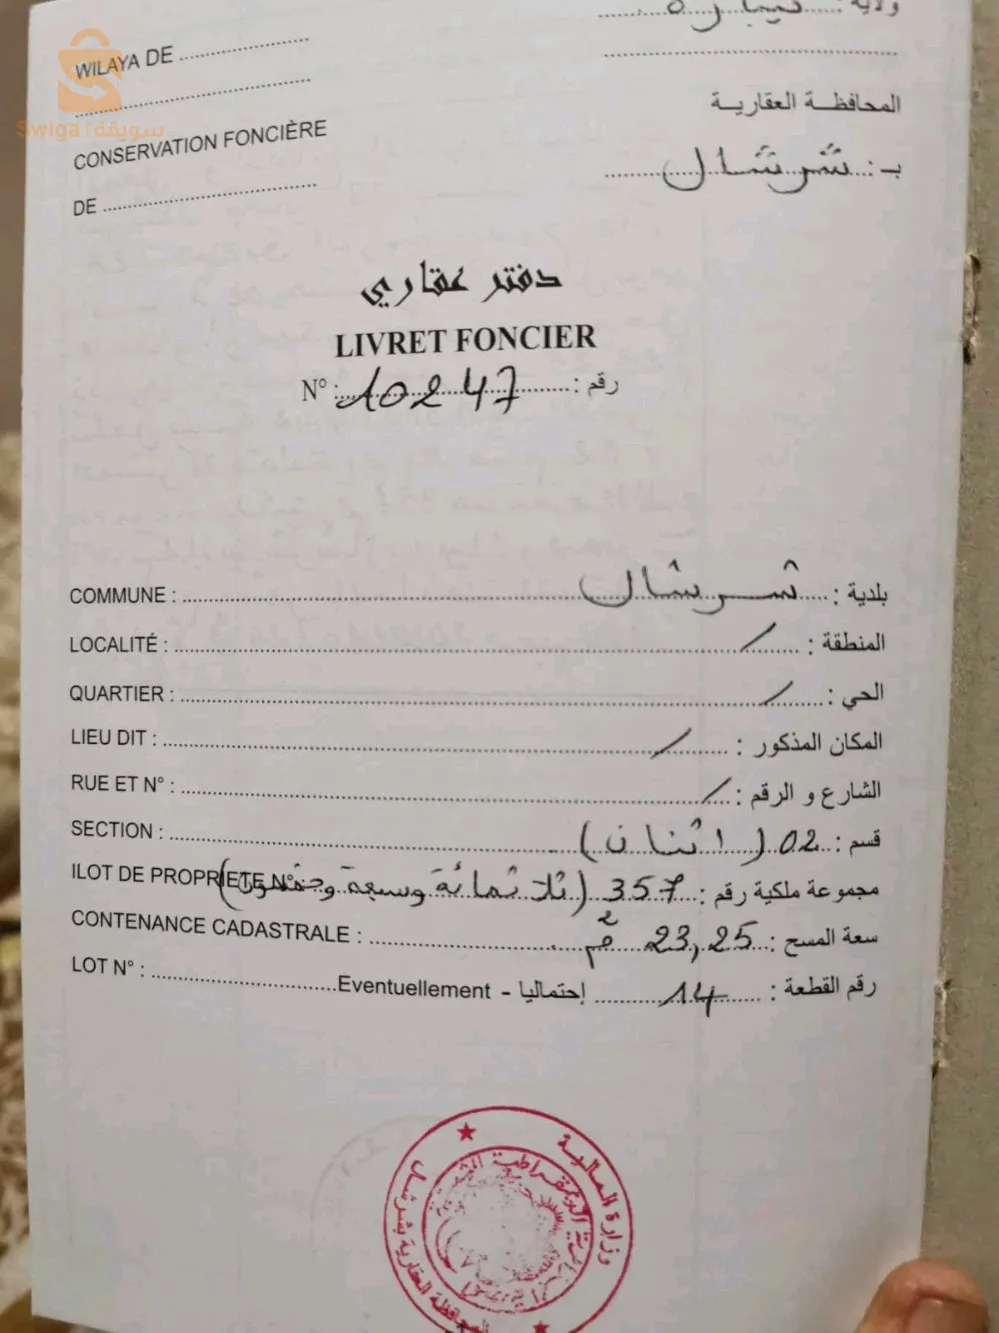 ولاية : تيبازة
WILAYA DE
Swiga | سويقة
المحافظة العقارية
CONSERVATION FONCIÈRE
بـ : شرشال
DE
دفتر عقاري
LIVRET FONCIER
N° : 10247 رقم :
COMMUNE : بلدية : شرشال
LOCALITÉ : المنطقة : /
QUARTIER : الحي : /
LIEU DIT : المكان المذكور : /
RUE ET N° : الشارع و الرقم : /
SECTION : قسم : 02 (اثنان)
ILOT DE PROPRIETE N° مجموعة ملكية رقم : 357 (ثلاثمائة وسبعة وخمسون)
CONTENANCE CADASTRALE : سعة المسح : 23,25 م²
LOT N° : Eventuellement - إحتماليا 14 رقم القطعة :
وزارة المالية
المحافظة العقارية بشرشال